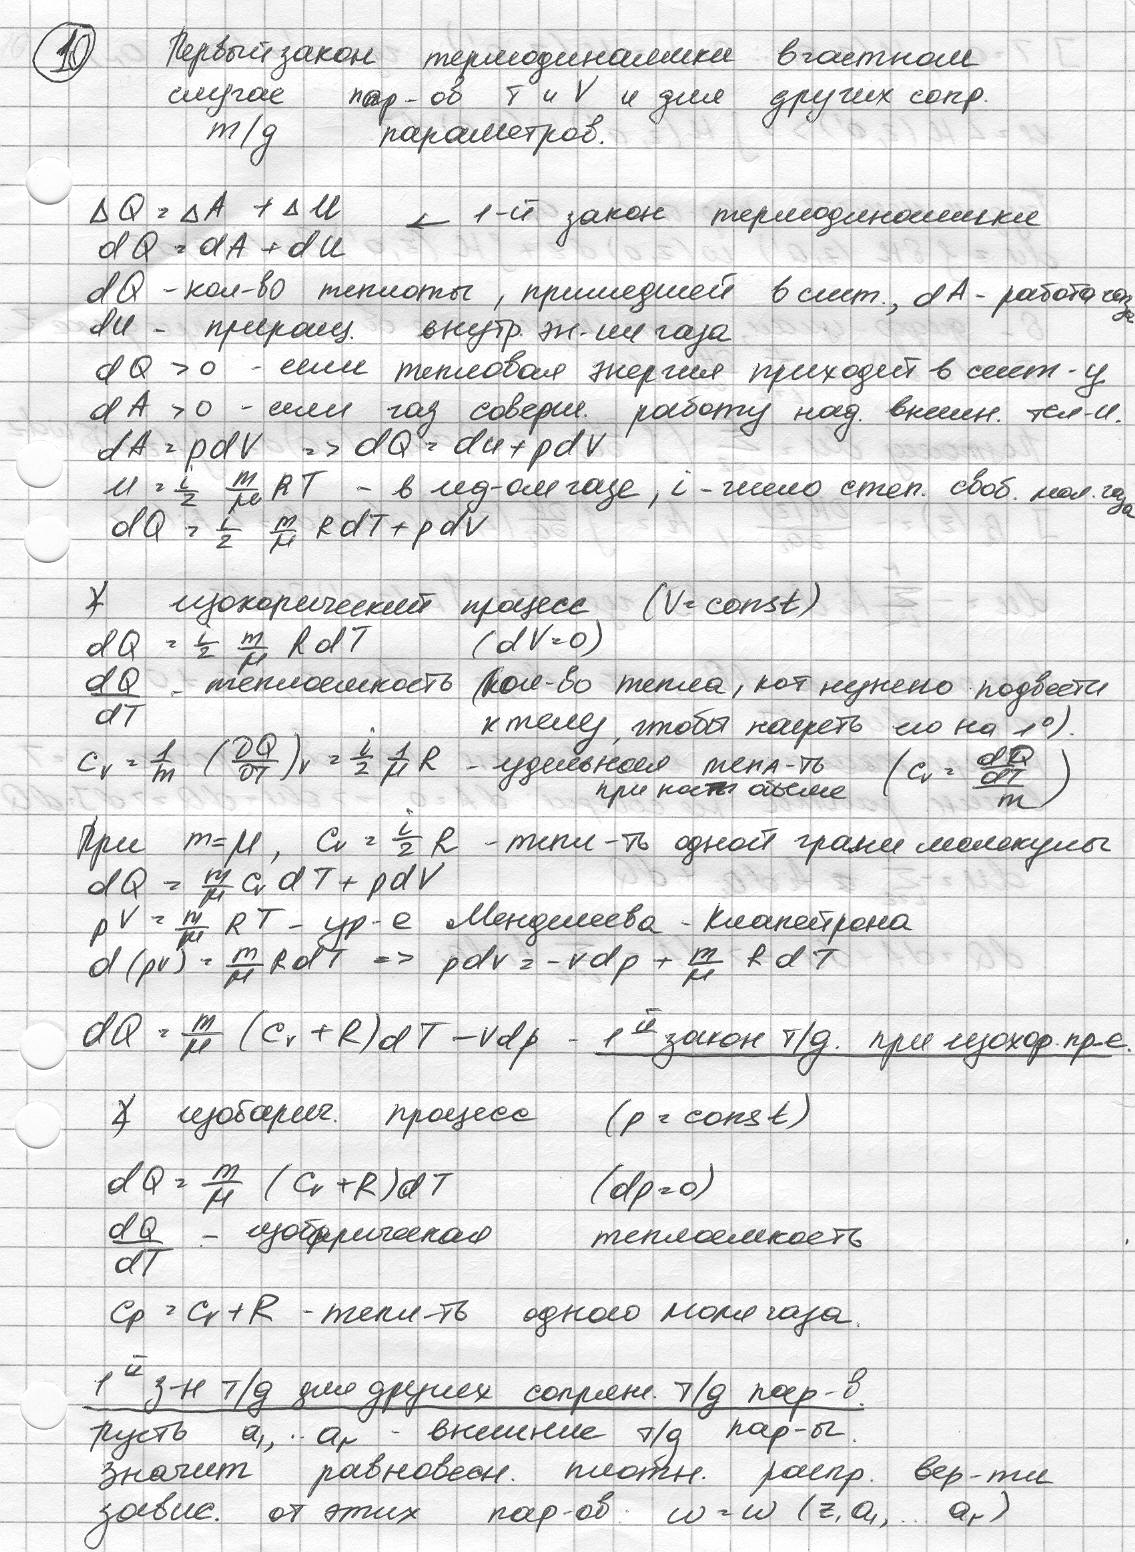 10 Первый закон термодинамики в частном
случае пар-ов T и V и для других сопр.
т/д параметров.
ΔQ = ΔA + ΔU ← 1-й закон термодинамики
dQ = dA + dU
dQ - кол-во теплоты, пришедшей в сист., dA - работа газа
dU - приращ. внутр. эн-ии газа
dQ > 0 - если тепловая энергия приходит в сист-у
dA > 0 - если газ соверш. работу над. внешн. тел-и.
dA = pdV => dQ = dU + pdV
U = i/2 m/μ RT - в ид-ом газе, i - число степ. своб. мол. газа
dQ = i/2 m/μ RdT + pdV
изохорический процесс (V = const)
dQ = i/2 m/μ RdT (dV=0)
dQ/dT - теплоемкость (кол-во тепла, кот нужно подвести
к телу, чтобы нагреть его на 1°).
Cv = 1/m (DQ/DT)v = i/2 1/μ R - удельная тепл-ть (Cv = dQ/dT / m)
при объеме
При m=μ, Cv = i/2 R - тепл-ть одной грамм молекулы
dQ = m/μ Cv dT + pdV
pV = m/μ RT - ур-е Менделеева - Клапейрона
d(pV) = m/μ RdT => pdV = -Vdp + m/μ RdT
dQ = m/μ (Cv + R)dT - Vdp - 1й закон т/д. при изохор. пр-е.
изобарич. процесс (p = const)
dQ = m/μ (Cv + R)dT (dp=0)
dQ/dT - изобарическая теплоемкость
Cp = Cv + R - тепл-ть одного моля газа.
1й з-н т/д для других сопряж. т/д пар-в.
Пусть a₁, .. aᵣ - внешние т/д пар-ы.
Значит равновесн. плотн. распр. вер-ти
завис. от этих пар-ов. w = w (z, a₁, ... aᵣ)